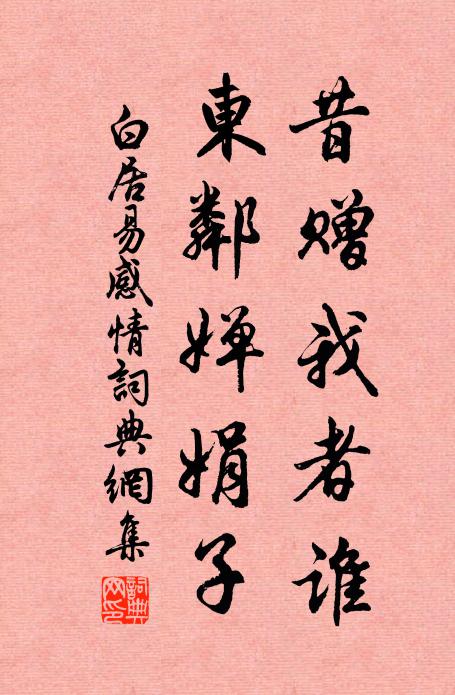 昔贈我者誰
東鄰嬋娟子
白居易感情詞典網集
詞典網印